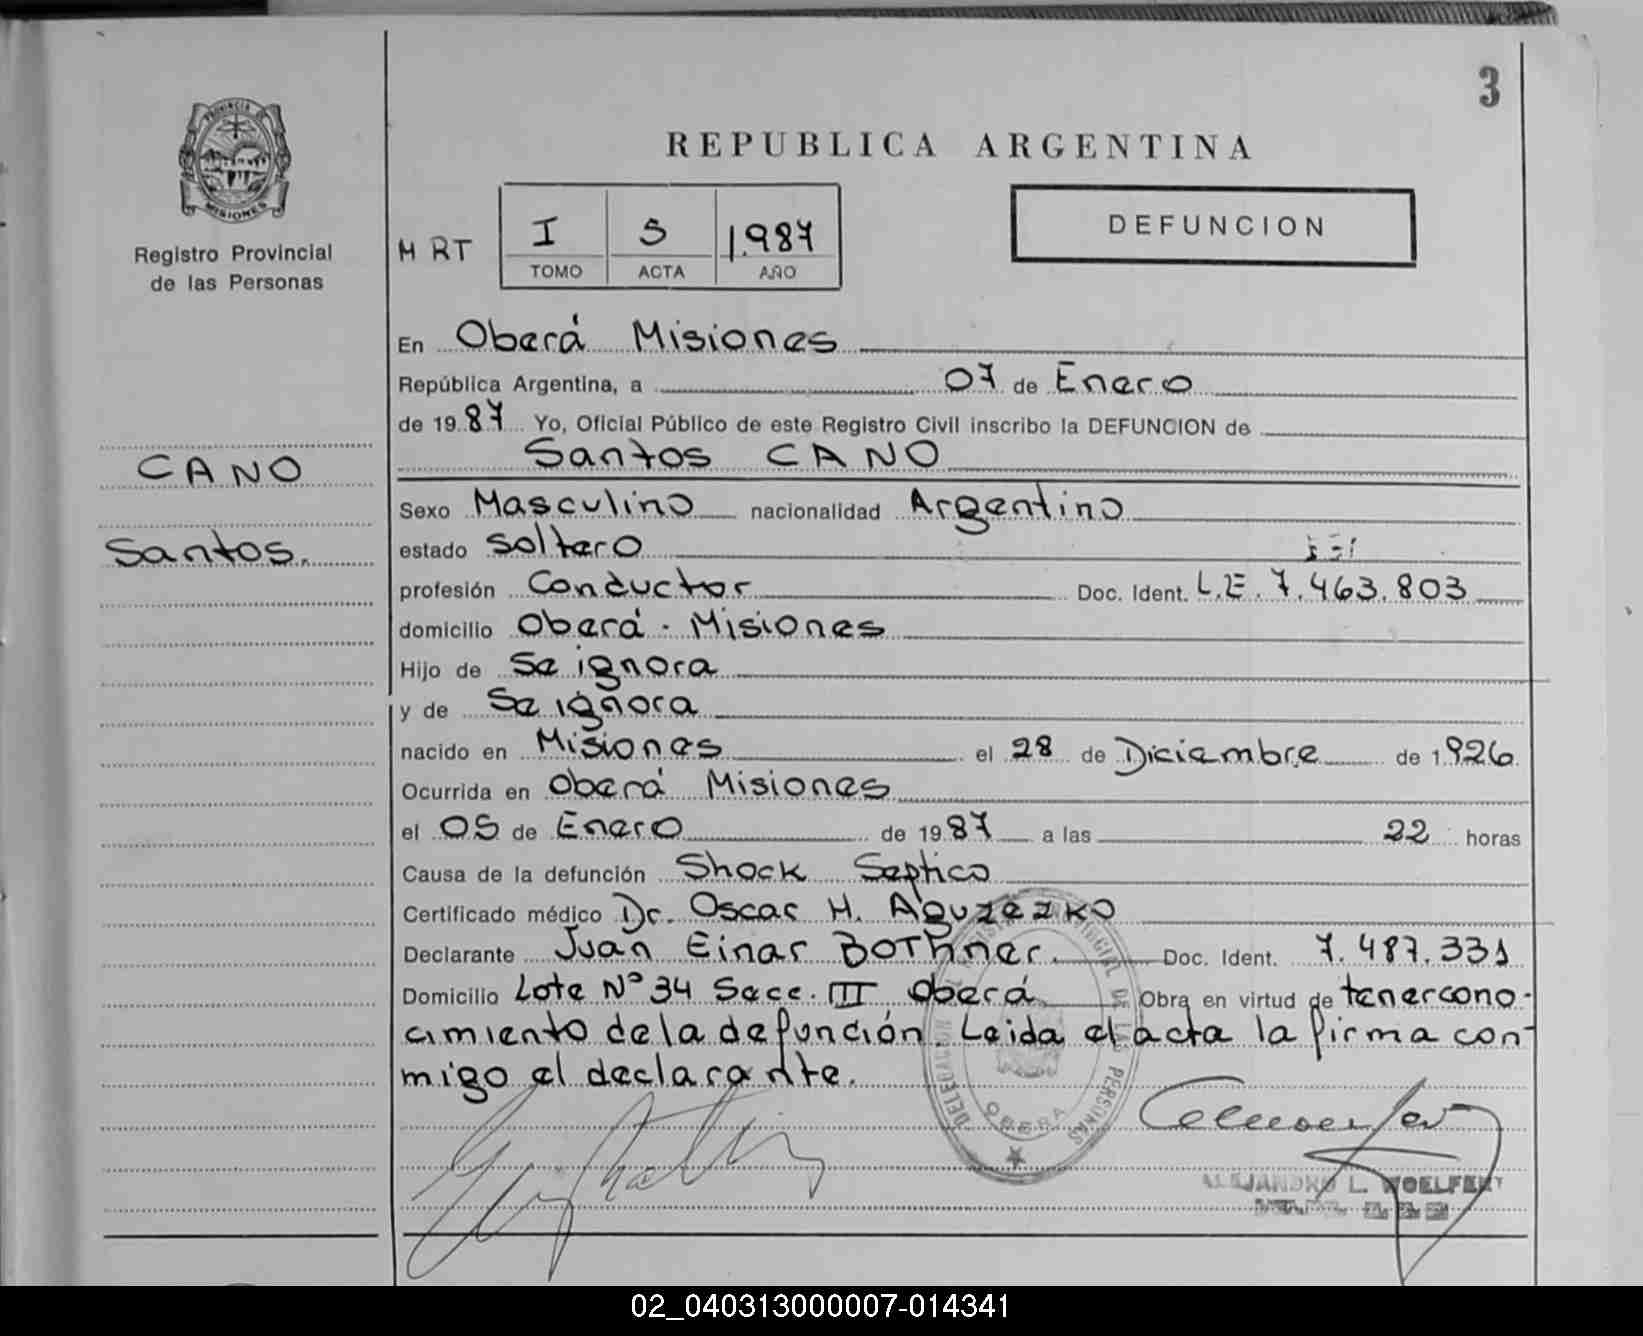 3
PROVINCIA
MISIONES
Registro Provincial
de las Personas
REPUBLICA ARGENTINA
MRT I S 1.987
TOMO ACTA AÑO
DEFUNCION
En Oberá Misiones
República Argentina, a 07 de Enero
de 1987 Yo, Oficial Público de este Registro Civil inscribo la DEFUNCION de
CANO
Santos CANO
Sexo Masculino nacionalidad Argentino
Santos.
estado Soltero
profesión Conductor Doc. Ident. L.E. 7.463.803
domicilio Oberá - Misiones
Hijo de Se ignora
y de Se ignora
nacido en Misiones el 28 de Diciembre de 1926
Ocurrida en Oberá Misiones
el 05 de Enero de 1987 a las 22 horas
Causa de la defunción Shock Septico
Certificado médico Dr. Oscar H. Aguzezko
Declarante Juan Einar BOTHner. Doc. Ident. 7.487.331
Domicilio Lote Nº 34 Secc. III Oberá Obra en virtud de tener cono-
cimiento de la defunción. Leida el acta la firma con-
migo el declarante.
DELEGACION REGISTRO PROVINCIAL DE LAS PERSONAS
OBERA
ALEJANDRO L. WOELFERT
02_040313000007-014341